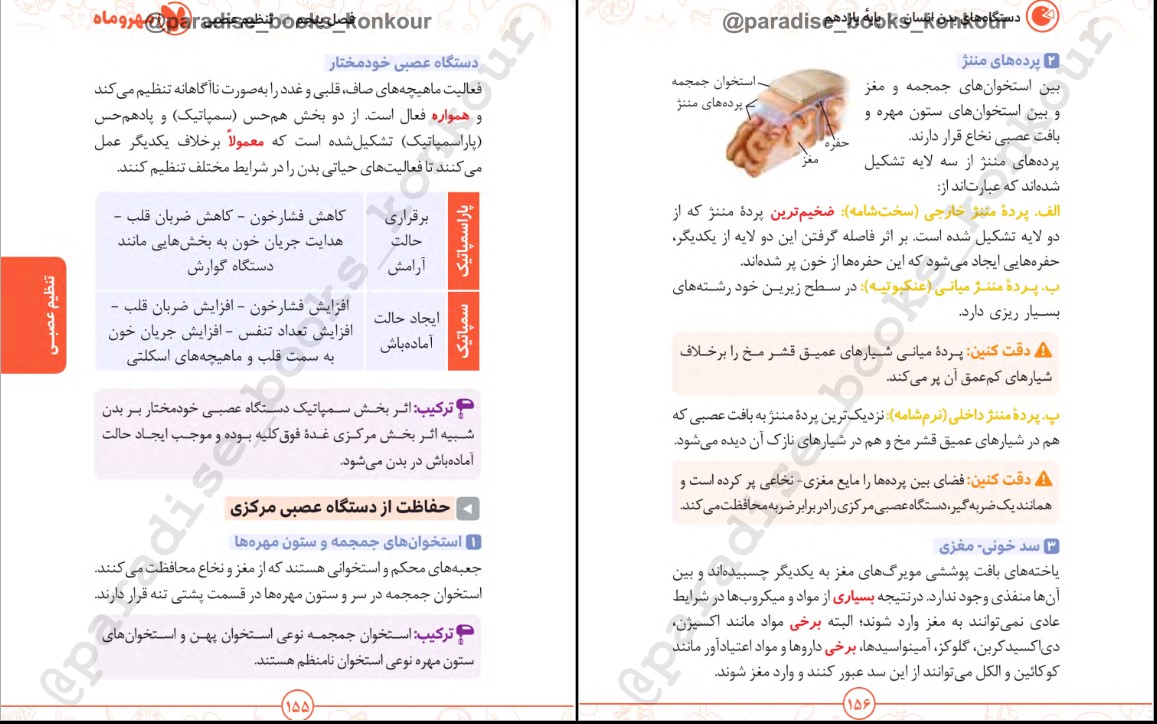 فصل پنجم - تنظیم عصبی مهروماه
@paradise_books_konkour
دستگاه عصبی خودمختار
فعالیت ماهیچه‌های صاف، قلبی و غدد را به‌صورت ناآگاهانه تنظیم می‌کند
و همواره فعال است. از دو بخش هم‌حس (سمپاتیک) و پادهم‌حس
(پاراسمپاتیک) تشکیل‌شده است که معمولاً برخلاف یکدیگر عمل
می‌کنند تا فعالیت‌های حیاتی بدن را در شرایط مختلف تنظیم کنند.
پاراسمپاتیک
برقراری
حالت
آرامش
کاهش فشارخون - کاهش ضربان قلب -
هدایت جریان خون به بخش‌هایی مانند
دستگاه گوارش
سمپاتیک
ایجاد حالت
آماده‌باش
افزایش فشارخون - افزایش ضربان قلب -
افزایش تعداد تنفس - افزایش جریان خون
به سمت قلب و ماهیچه‌های اسکلتی
ترکیب: اثر بخش سمپاتیک دستگاه عصبی خودمختار بر بدن
شبیه اثر بخش مرکزی غدهٔ فوق‌کلیه بوده و موجب ایجاد حالت
آماده‌باش در بدن می‌شود.
حفاظت از دستگاه عصبی مرکزی
۱ استخوان‌های جمجمه و ستون مهره‌ها
جعبه‌های محکم و استخوانی هستند که از مغز و نخاع محافظت می‌کنند.
استخوان جمجمه در سر و ستون مهره‌ها در قسمت پشتی تنه قرار دارند.
ترکیب: استخوان جمجمه نوعی استخوان پهن و استخوان‌های
ستون مهره نوعی استخوان نامنظم هستند.
۱۵۵
تنظیم عصبی
@paradise_books_konkour
دستگاه‌های بدن انسان پایهٔ یازدهم
@paradise_books_konkour
۲ پرده‌های مننژ
بین استخوان‌های جمجمه و مغز
و بین استخوان‌های ستون مهره و
بافت عصبی نخاع قرار دارند.
پرده‌های مننژ از سه لایه تشکیل
شده‌اند که عبارت‌اند از:
استخوان جمجمه
پرده‌های مننژ
حفره
مغز
الف. پردهٔ مننژ خارجی (سخت‌شامه): ضخیم‌ترین پردهٔ مننژ که از
دو لایه تشکیل شده است. بر اثر فاصله گرفتن این دو لایه از یکدیگر،
حفره‌هایی ایجاد می‌شود که این حفره‌ها از خون پر شده‌اند.
ب. پردهٔ مننژ میانی (عنکبوتیه): در سطح زیرین خود رشته‌های
بسیار ریزی دارد.
دقت کنین: پردهٔ میانی شیارهای عمیق قشر مخ را برخلاف
شیارهای کم‌عمق آن پر می‌کند.
پ. پردهٔ مننژ داخلی (نرم‌شامه): نزدیک‌ترین پردهٔ مننژ به بافت عصبی که
هم در شیارهای عمیق قشر مخ و هم در شیارهای نازک آن دیده می‌شود.
دقت کنین: فضای بین پرده‌ها را مایع مغزی- نخاعی پر کرده است و
همانند یک ضربه‌گیر، دستگاه عصبی مرکزی را در برابر ضربه محافظت می‌کند.
۳ سد خونی- مغزی
یاخته‌های بافت پوششی مویرگ‌های مغز به یکدیگر چسبیده‌اند و بین
آن‌ها منفذی وجود ندارد. درنتیجه بسیاری از مواد و میکروب‌ها در شرایط
عادی نمی‌توانند به مغز وارد شوند؛ البته برخی مواد مانند اکسیژن،
دی‌اکسیدکربن، گلوکز، آمینواسیدها، برخی داروها و مواد اعتیادآور مانند
کوکائین و الکل می‌توانند از این سد عبور کنند و وارد مغز شوند.
۱۵۶
@paradise_books_konkour